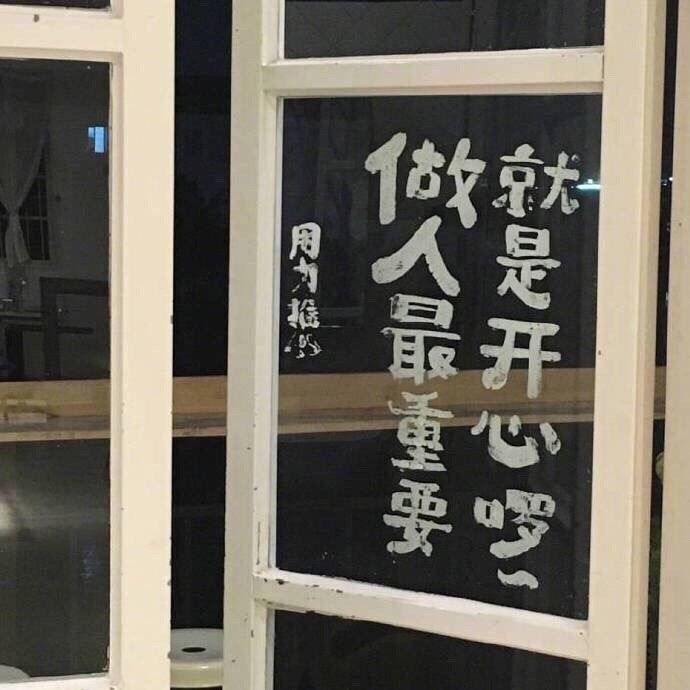 做人最重要
就是开心啰~
用力推